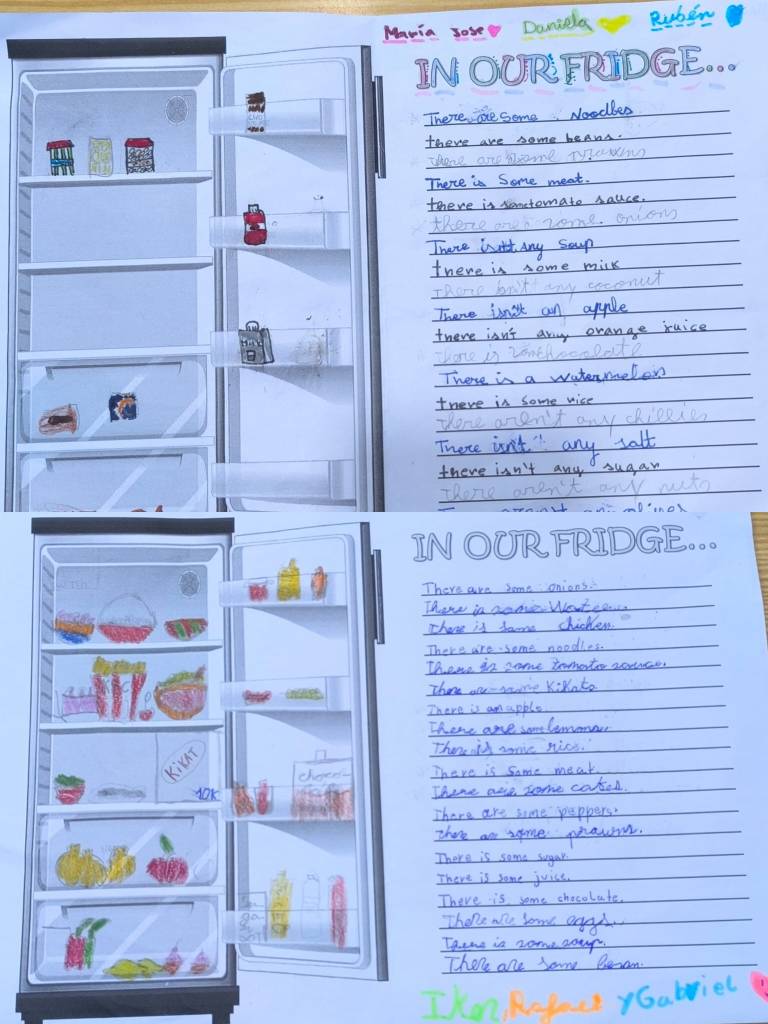 María Jose Daniela Rubén
IN OUR FRIDGE...
There are some noodles
there are some beans.
there are some prawns
There is some meat.
there is some tomato sauce.
there are some onions
There isn't any soup
there is some milk
there isn't any coconut
There isn't an apple
there isn't any orange juice
there is some chocolate
There is a watermelon
there is some rice
there aren't any chillies
There isn't any salt
there isn't any sugar
There aren't any nuts
IN OUR FRIDGE...
There are some onions.
there is some Water.
there is some chicken.
There are some noodles.
there is some tomato sauce.
There are some KiKats
There is an apple.
there are some lemons.
There is some rice.
There is some meat.
there are some cakes.
There are some peppers.
there are some prawns.
There is some sugar.
There is some juice.
There is some chocolate.
There are some eggs.
There is some soup.
There are some bean.
KiKAT
choco-
Iker, Rafael y Gabriel